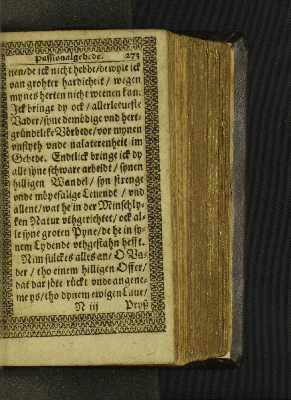 Passionalgebede. 273
nen/de ick nicht hebbe/dewyle ick
van grohter hardicheit / wegen
mynes herten nicht wenen kan.
Ick bringe dy ock / allerleueste
Vader/ syne demödige vnd hert-
gründtlike Vörbede/ vor mynen
vnflyth vnde nalatenheit im
Gebede. Endtlick bringe ick dy
alle syne schware arbeidt / synen
hilligen Wandel / syn strenge
vnde möyesalige Leuendt / vnd
allent/ wat he in der Minschly-
ken Natur vthgerichtet / ock al-
le syne groten Pyne/ de he in sy-
nem Lydende vthgestahn hefft.
Nim sulckes alles an / O Va-
der / tho einem hilligen Offer/
dat dar söte rückt vnde angene-
me ys/ tho dynem ewigen Laue/
N iij Pryß